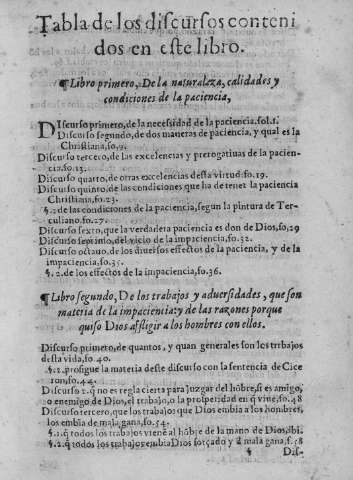 Tabla de los discursos conteni
dos en este libro.
¶ Libro primero, De la naturaleza, calidades y
condiciones de la paciencia,
Discurso primero, de la necessidad de la paciencia. fol.1.
Discurso segundo, de dos maneras de paciencia, y qual es la
Christiana, fo, 9.
Discurso tercero, de las excelencias y prerogatiuas de la pacien-
cia. fo. 13.
Discurso quarto, de otras excelencias desta virtud. fo. 19.
Discurso quinto, de las condiciones que ha de tener la paciencia
Christiana, fo. 23.
§. 2. de las condiciones de la paciencia, segun la pintura de Ter-
culiano. fo. 27.
Discurso sexto, que la verdadera paciencia es don de Dios, fo, 29
Discurso septimo, del vicio de la impaciencia, fo. 32.
Discurso octauo, de los diuersos effectos de la paciencia, y de la
impaciencia, fo. 35.
§. 2. de los effectos de la impaciencia, fo. 36.
¶ Libro segundo, De los trabajos y aduersidades, que son
materia de la impaciencia: y de las razones porque
quiso Dios affligir a los hombres con ellos.
Discurso primero, de quantos, y quan generales son los trabajos
desta vida, fo. 40.
§. 2. prosigue la materia deste discurso con la sentencia de Cice
ron, fo. 44.
Discurso 2. q̃ no es regla cierta para juzgar del hõbre, si es amigo,
o enemigo de Dios, el trabajo, o la prosperidad en q̃ viue, fo. 48
Discurso tercero, que los trabajos que Dios embia a los hombres,
los embia de mala gana, fo. 54.
§. 1. q̃ todos los trabajos vienē al hõbre de la mano de Dios, ibi.
§. 2. q̃ todos los trabajos embia Dios forçado y d̃ mala gana, f. 58
¶ Dis-